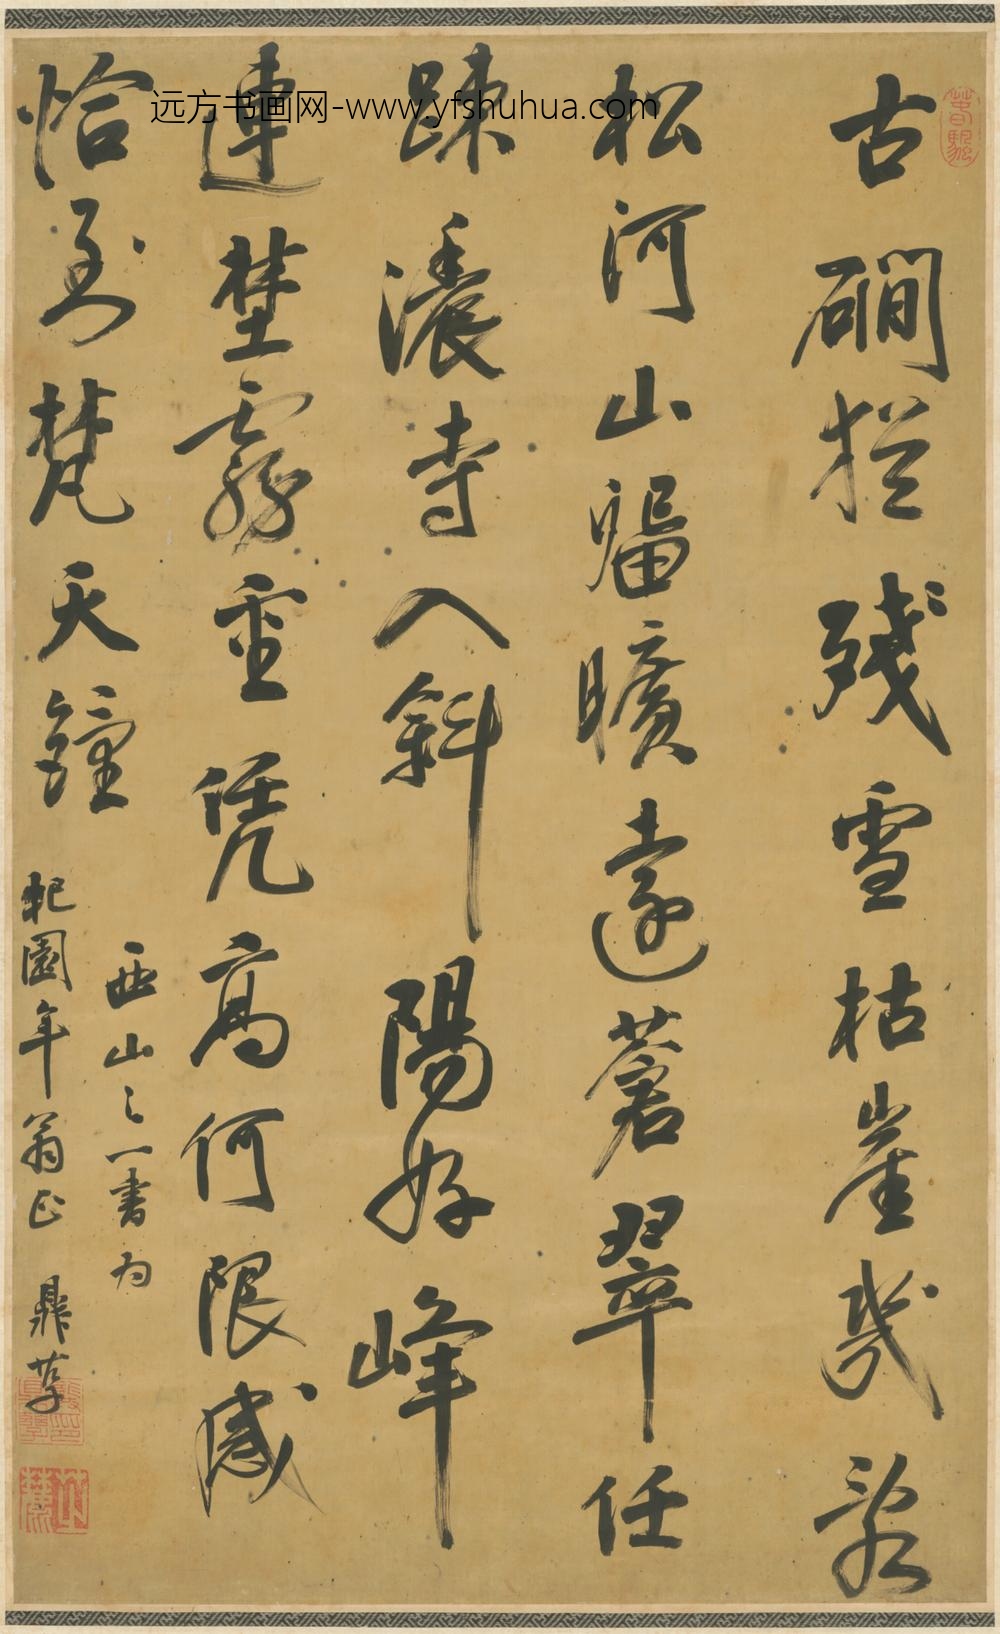 古磵殘雪枯崖幾
松河山曠遠蒼翠任
踈濃寺入斜陽好峰
連埜霧重凭高何限感
恰到梵天鐘
西山之一書為
杞園年翁正 鼎孳
龔鼎孳印
芝麓
远方书画网-www.yfshuhua.com